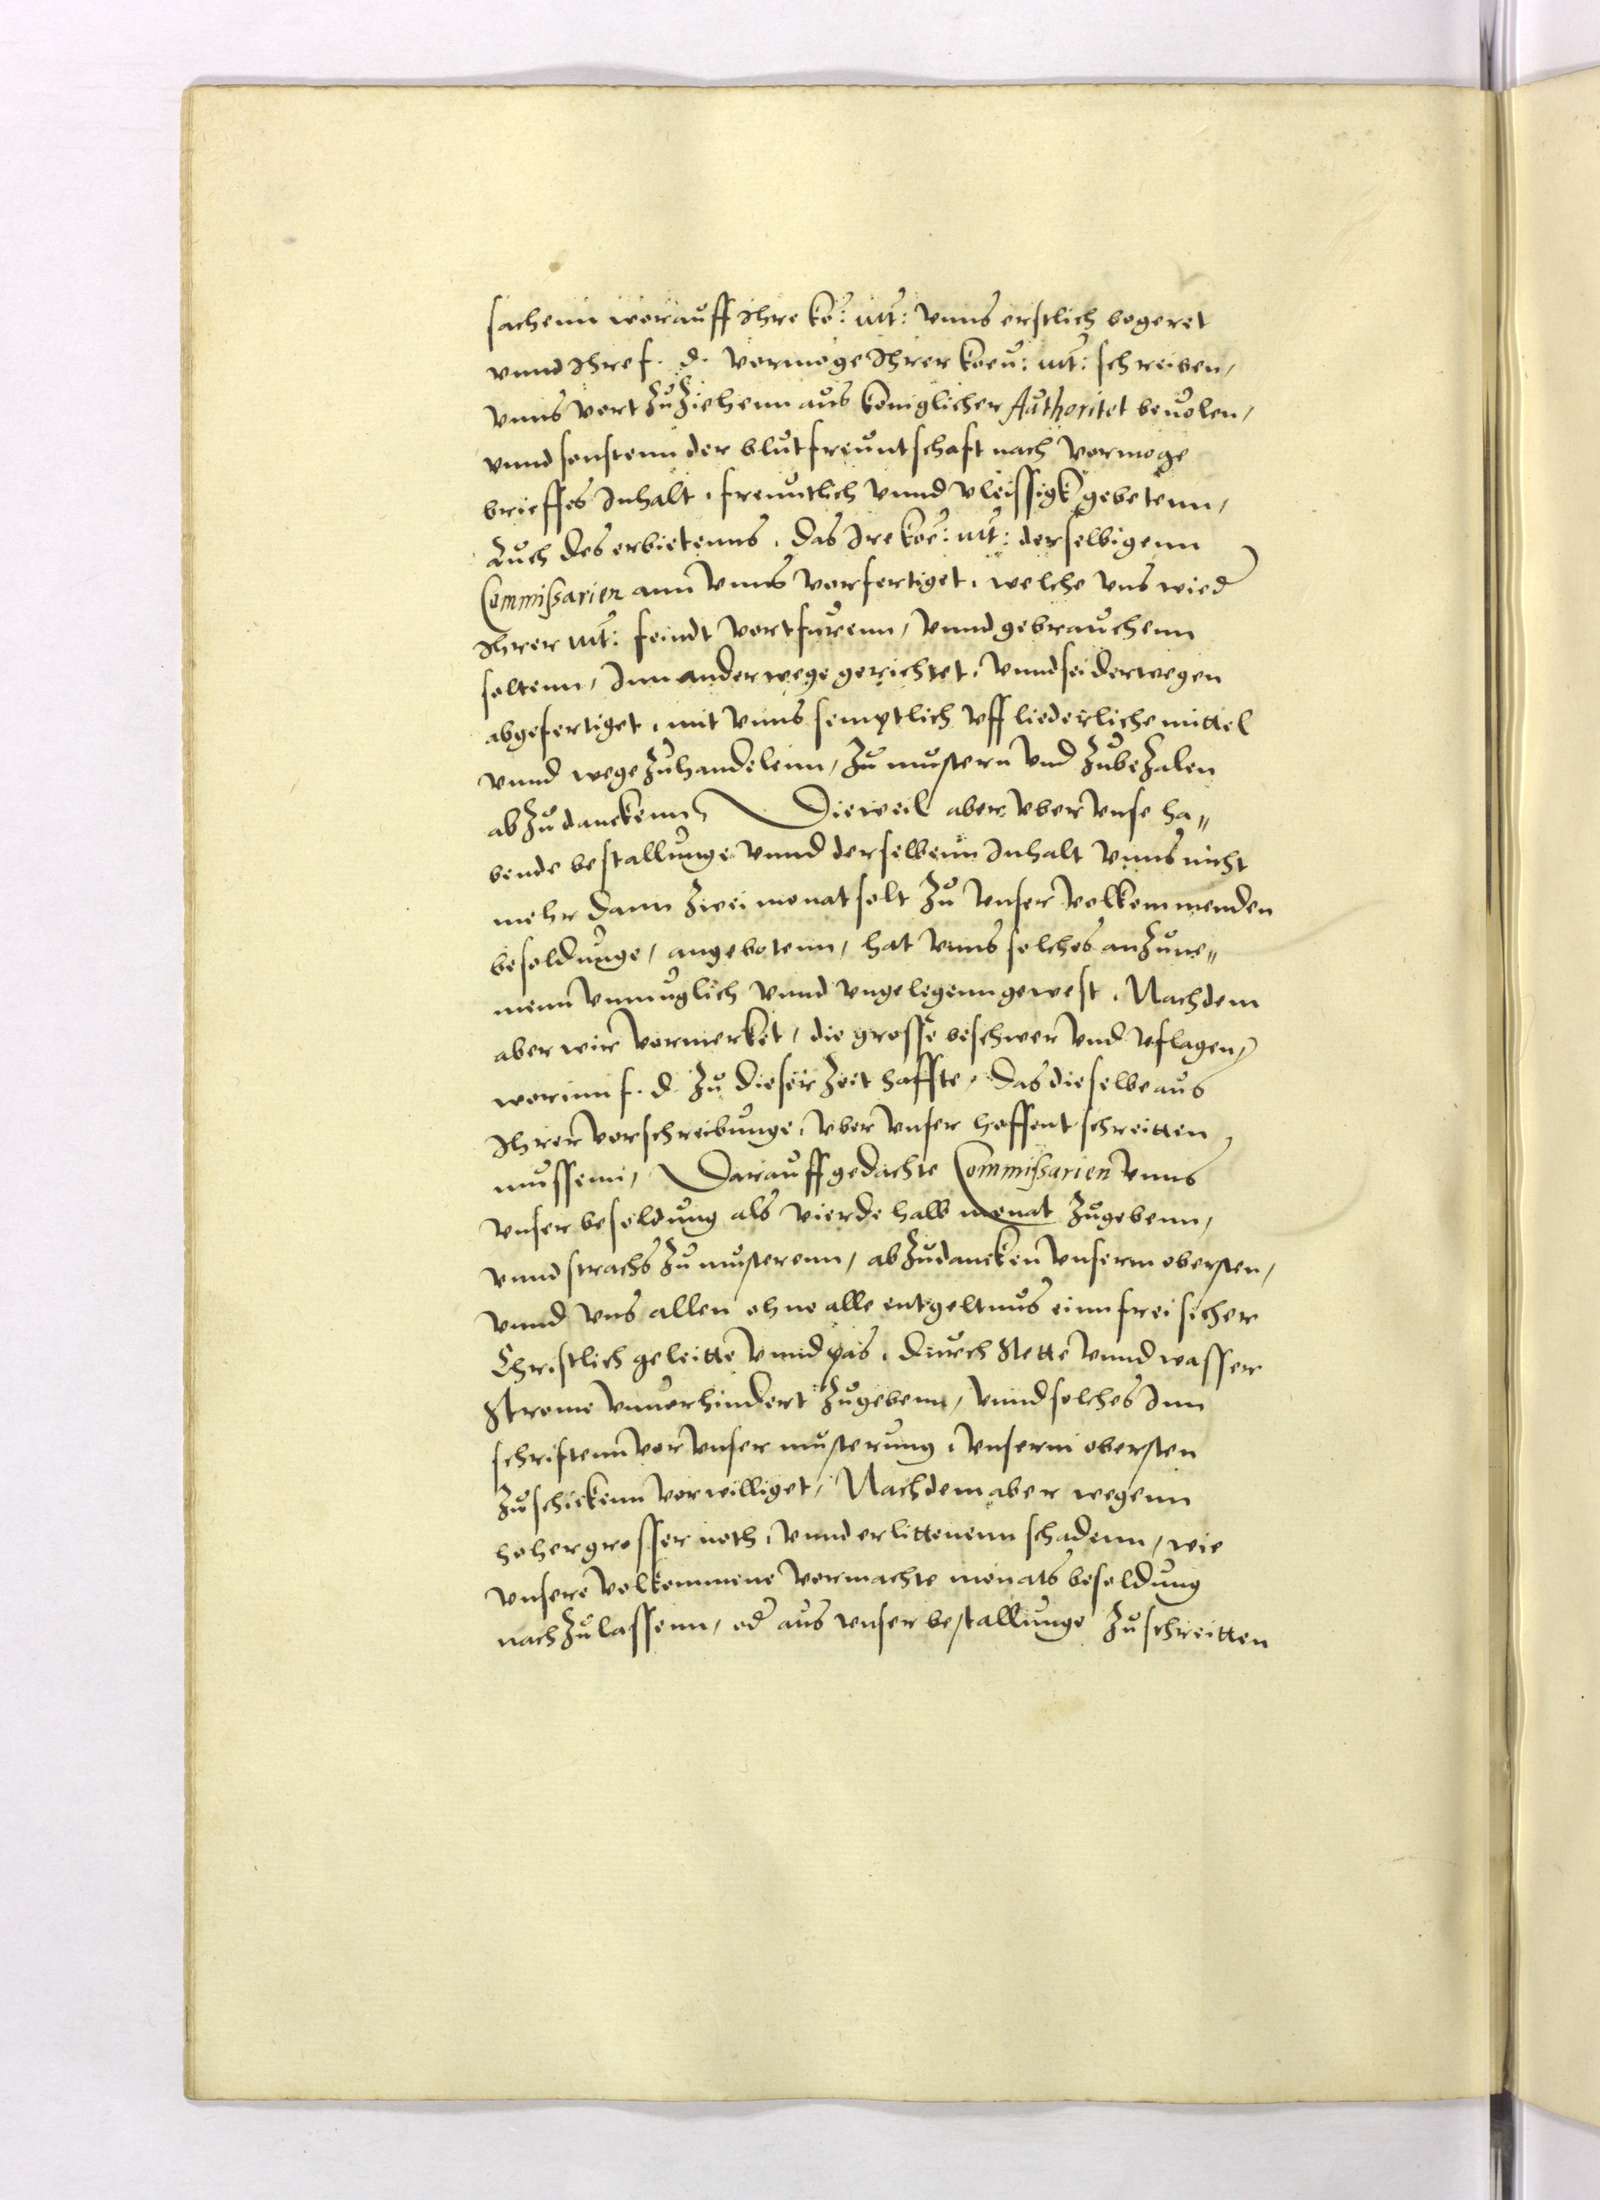 sachenn worauff Ihre ko: mt: vnns erstlich begeret
vnnd Ihre f. d. vermoge Ihrer koen: mt: schreiben,
vnns vort zuziehenn aus koniglicher Authoritet beuolen,
vnnd sonstenn der blutfreuntschaft nach vermoge
brieffes Inhalt, freuntlich vnnd vleissigk gebetenn,
Auch des erbietenns, das Ire koe: mt: derselbigenn
Commissarien ann vnns vorfertiget, welche vns wied
Ihrer mt: feindt vortfurenn, vnnd gebrauchenn
soltenn, Inn ander wege gerichtet, vnnd sei derwegen
abgefertiget, mit vnns semptlich vff liederliche mittel
vnnd wege zuhandelenn, zu mustern vnd zubezalen
abzudanckenn, Dieweil aber vber vnse ha„
bende bestallunge vnnd derselbenn Inhalt vnns nicht
mehr dann zwei monat solt zu vnser volkommenden
besoldunge, angebotenn, hat vnns solches anzune„
menn vnmuglich vnnd vngelegenn gewest, Nachdem
aber wir vermerket, die grosse beschwer vnd vflagen,
worinn f. d. zu dieser zeit haffte, das dieselbe aus
Ihrer vorschreibunge, vber vnser hoffent schreitten
mussenn, Darauff gedachte Commissarien vnns
vnser besoldung als vierde halb monat zugebenn,
vnnd strachs zu musterenn, abzudancken vnserm obersten,
vnnd vns allen ohne alle entgeltnus einn frei sicher
Christlich geleitte vnnd pas, durch Stette vnnd wasser
Strome vnuerhindert zugebenn, vnnd solches Inn
schriftenn vor vnser musterung, vnserm obersten
zuschickenn vorwilliget, Nachdem aber wegenn
hoher grosser noth, vnnd erlittenenn schadenn, wie
vnsere volkommene vermachte monats besoldung
nachzulassenn, od aus vnser bestallunge zuschreitten